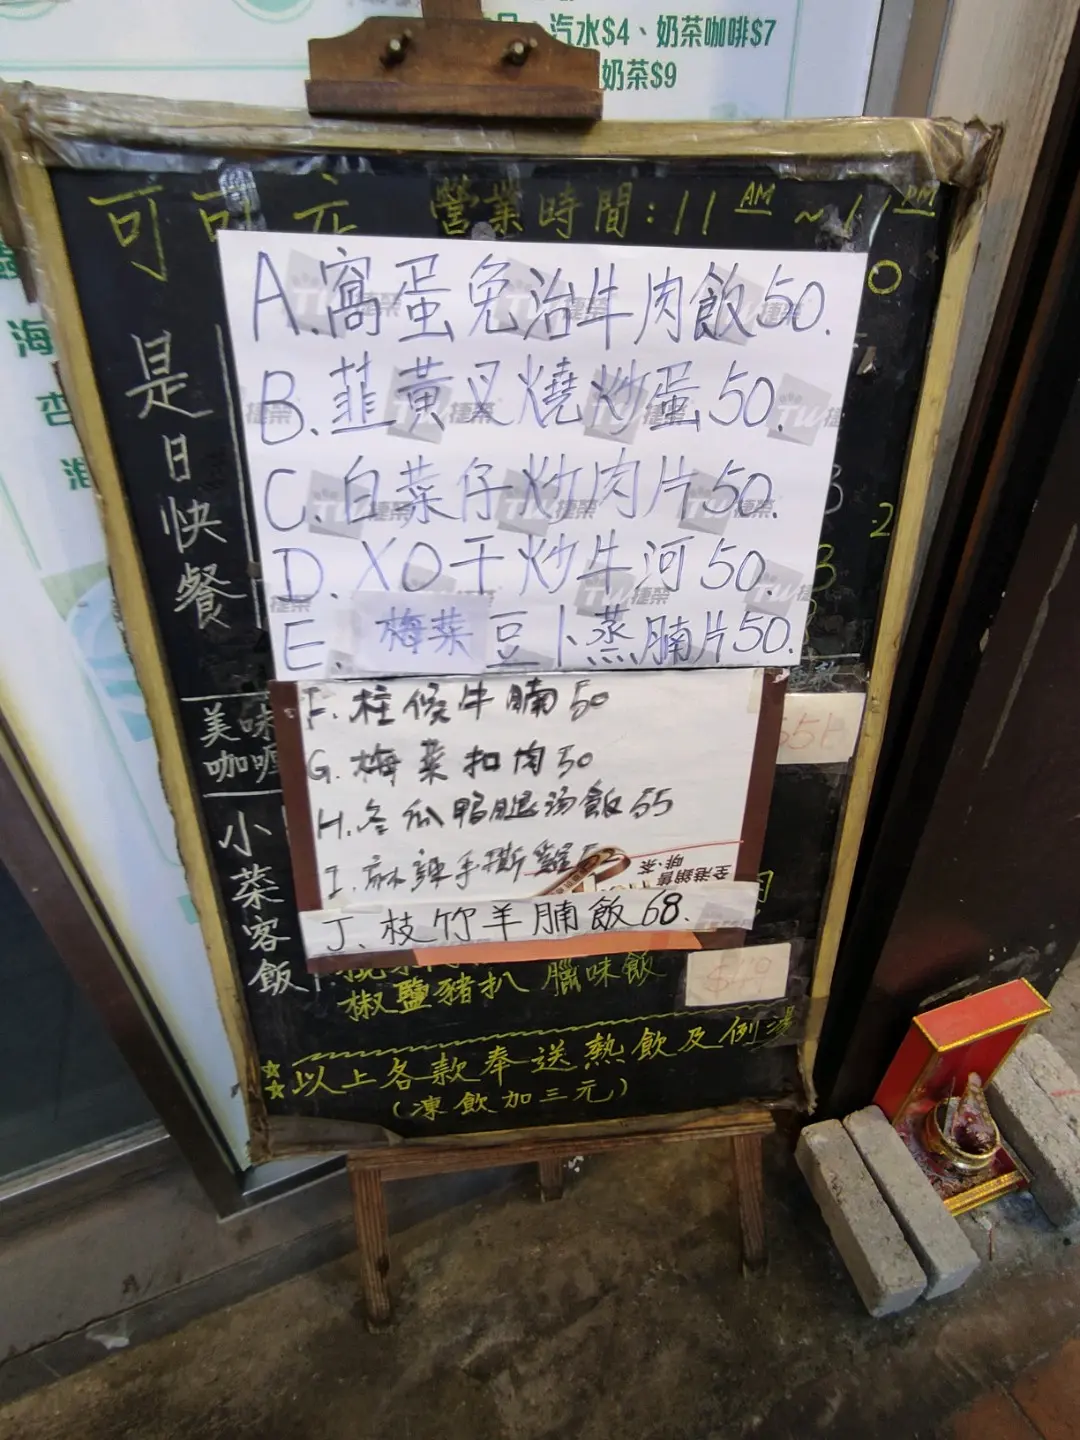 汽水$4、奶茶咖啡$7
奶茶$9
營業時間:11AM~
A.窩蛋免治牛肉飯50.
B.韮黃叉燒炒蛋50.
C.白菜仔炒肉片50.
D.XO干炒牛河50.
E.梅菜豆卜蒸腩片50.
F.柱候牛腩50
G.梅菜扣肉50
H.冬瓜鴨腿汤飯55
I.麻辣手撕雞
J.枝竹羊腩飯68.
是日快餐
美味
咖喱
小菜客飯
全港銷售
啡.茶
椒鹽豬扒 臘味飯
$49
以上各款奉送熱飲及例湯
(凍飲加三元)
海
杏
TW捷榮